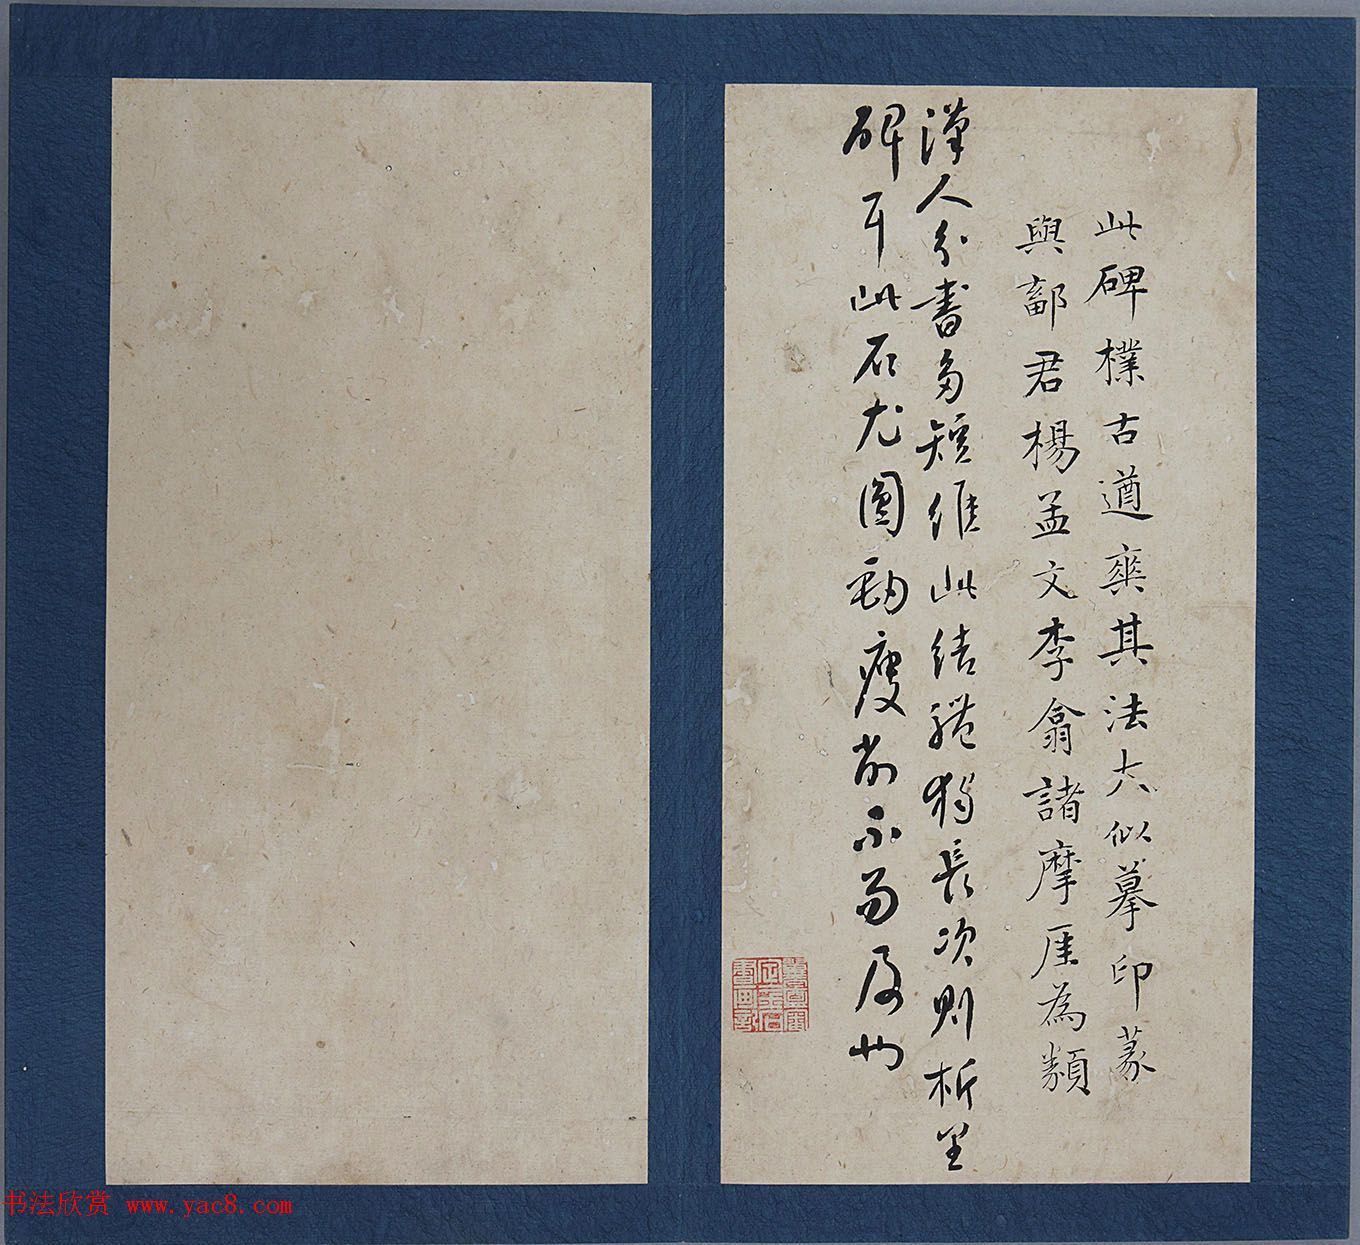 此碑樸古遒爽其法大似摹印篆
與鄐君楊孟文李翕諸摩厓為類
漢人分書多短維此結體獨長次則析里
碑耳此石尤圓勁瘦削不易及也
书法欣赏 www.yac8.com